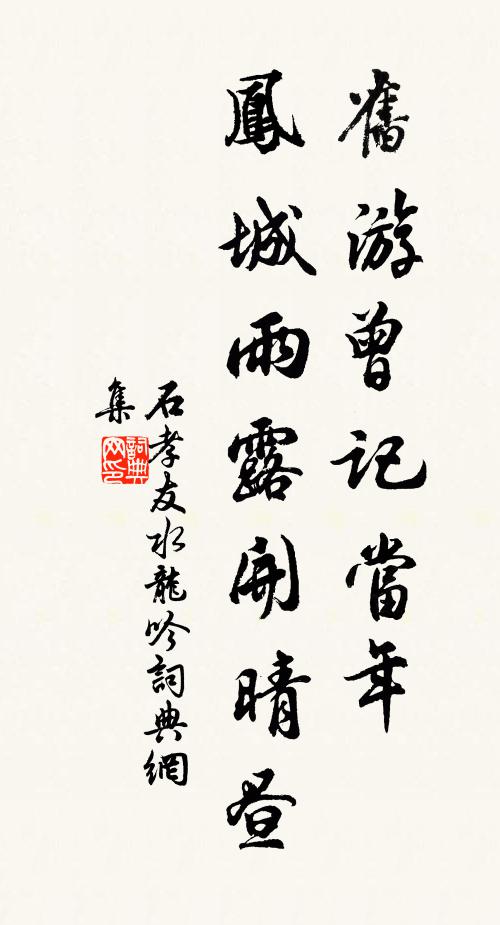 舊游曾記當年
鳳城雨露開晴晝
石孝友水龍吟詞典網
集
詞典
网印